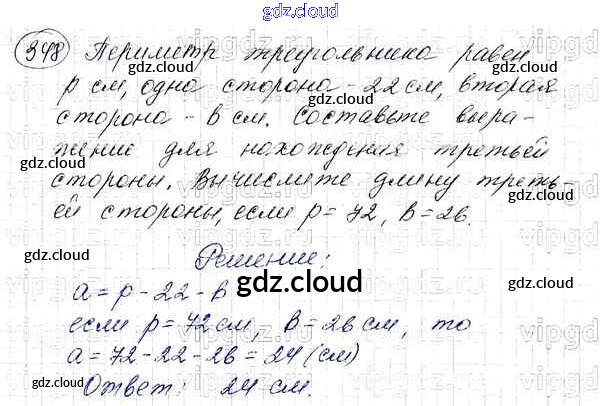 gdz.cloud
348 Периметр треугольника равен
p см, одна сторона - 22 см, вторая
сторона - b см. Составьте выра-
жение для нахождения третьей
стороны. Вычислите длину треть-
ей стороны, если p = 72, b = 26.
Решение:
a = p - 22 - b
если p = 72 см, b = 26 см, то
a = 72 - 22 - 26 = 24 (см)
Ответ: 24 см.
gdz.cloud
gdz.cloud
gdz.cloud
gdz.cloud
gdz.cloud
gdz.cloud
gdz.cloud
gdz.cloud
gdz.cloud
gdz.cloud
gdz.cloud